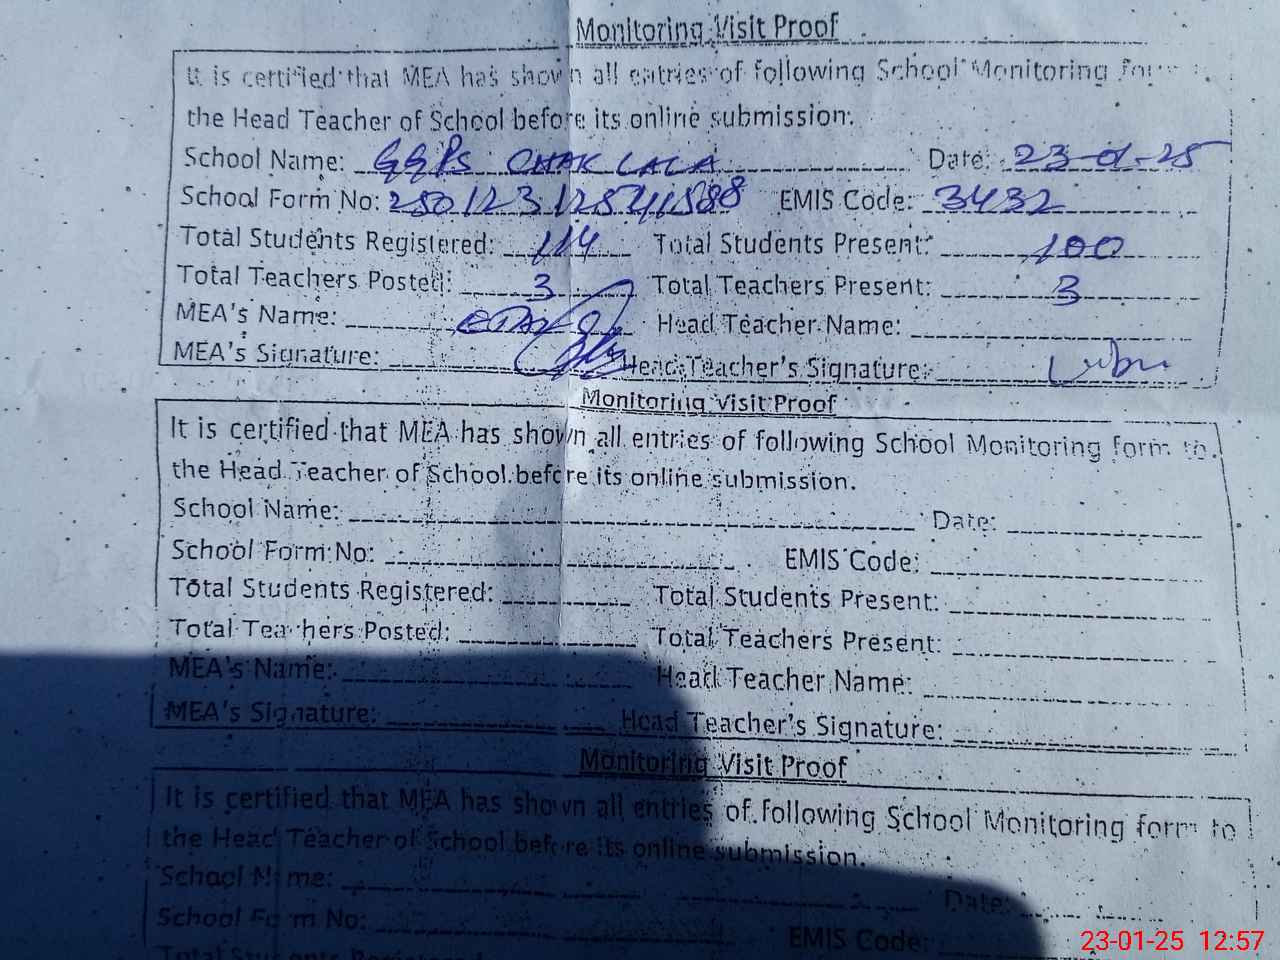 Monitoring Visit Proof
It is certified that MEA has shown all entries of following School Monitoring form
the Head Teacher of School before its online submission.
School Name: GGPS CHAK LALA Date: 23-01-25
School Form No: EMIS Code: 3432
Total Students Registered: 114 Total Students Present: 100
Total Teachers Posted: 3 Total Teachers Present: 3
MEA's Name: Head Teacher Name:
MEA's Signature: Head Teacher's Signature:
Monitoring Visit Proof
It is certified that MEA has shown all entries of following School Monitoring form to
the Head Teacher of School before its online submission.
School Name: Date:
School Form No: EMIS Code:
Total Students Registered: Total Students Present:
Total Teachers Posted: Total Teachers Present:
MEA's Name: Head Teacher Name:
MEA's Signature: Head Teacher's Signature:
Monitoring Visit Proof
It is certified that MEA has shown all entries of following School Monitoring form to
the Head Teacher of School before its online submission.
School Name: Date:
School Form No: EMIS Code:
Total Students Registered:
23-01-25 12:57